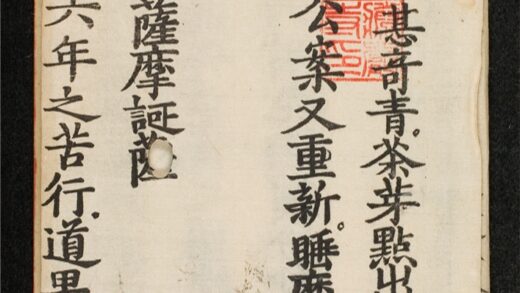 甚奇青。茶芽點出
公案又重新。睡魔
菩薩摩訶薩
六年之苦行。道果